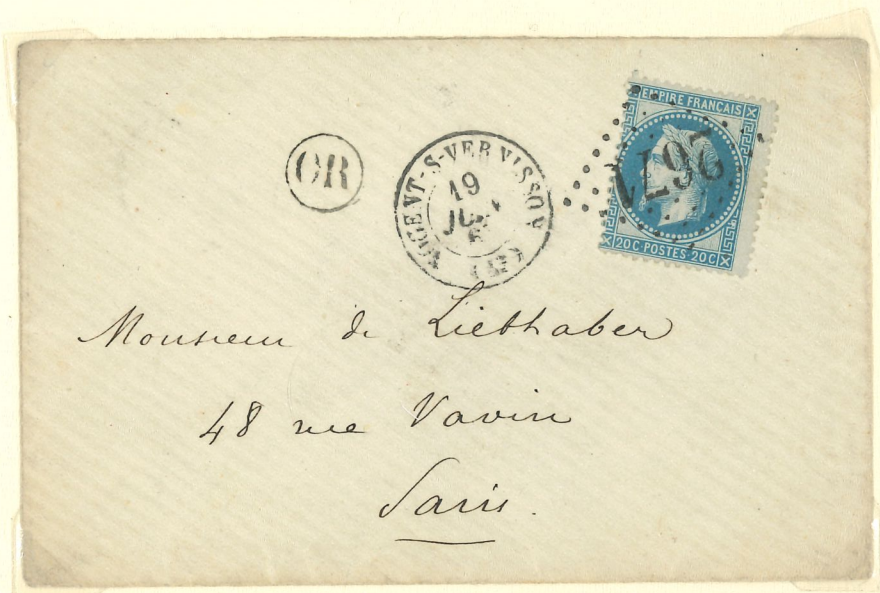 OR
NOGENT-S-VERNISSON
19
JUIN
6
(43)
EMPIRE FRANÇAIS
2671
20C·POSTES·20C
Monsieur de Liebhaber
48 rue Vavin
Paris.